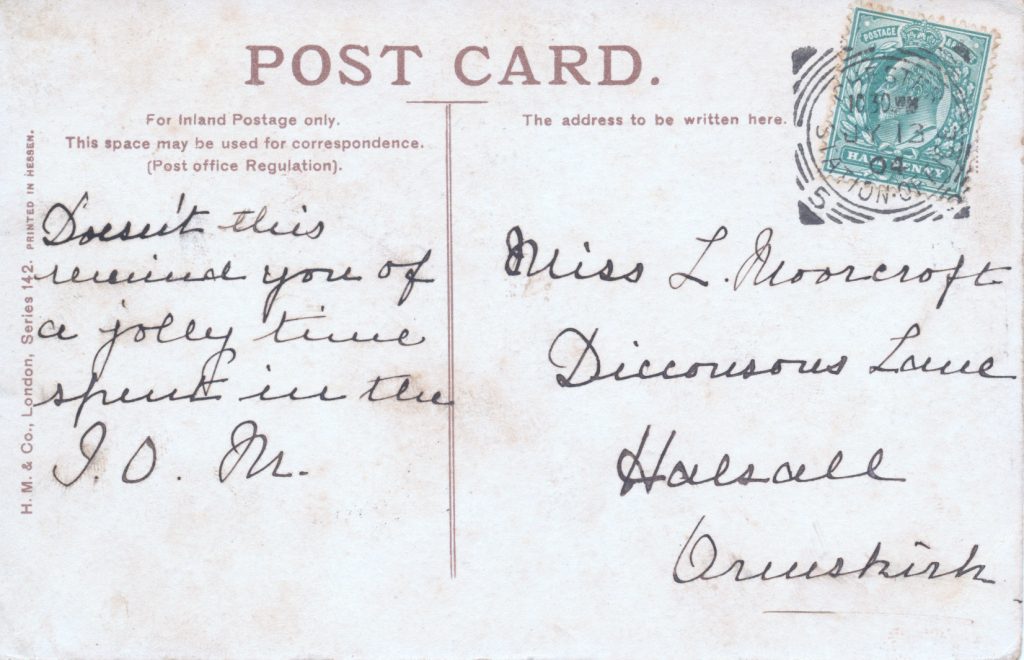 POST CARD.
For Inland Postage only.
This space may be used for correspondence.
(Post office Regulation).
The address to be written here.
H. M. & Co., London, Series 142. PRINTED IN HESSEN.
Doesn't this
remind you of
a jolly time
spent in the
I. O. M.
Miss L. Moorcroft
Dicconsons Lane
Halsall
Ormskirk
POSTAGE
HALFPENNY
10 30
JY 13
04
5